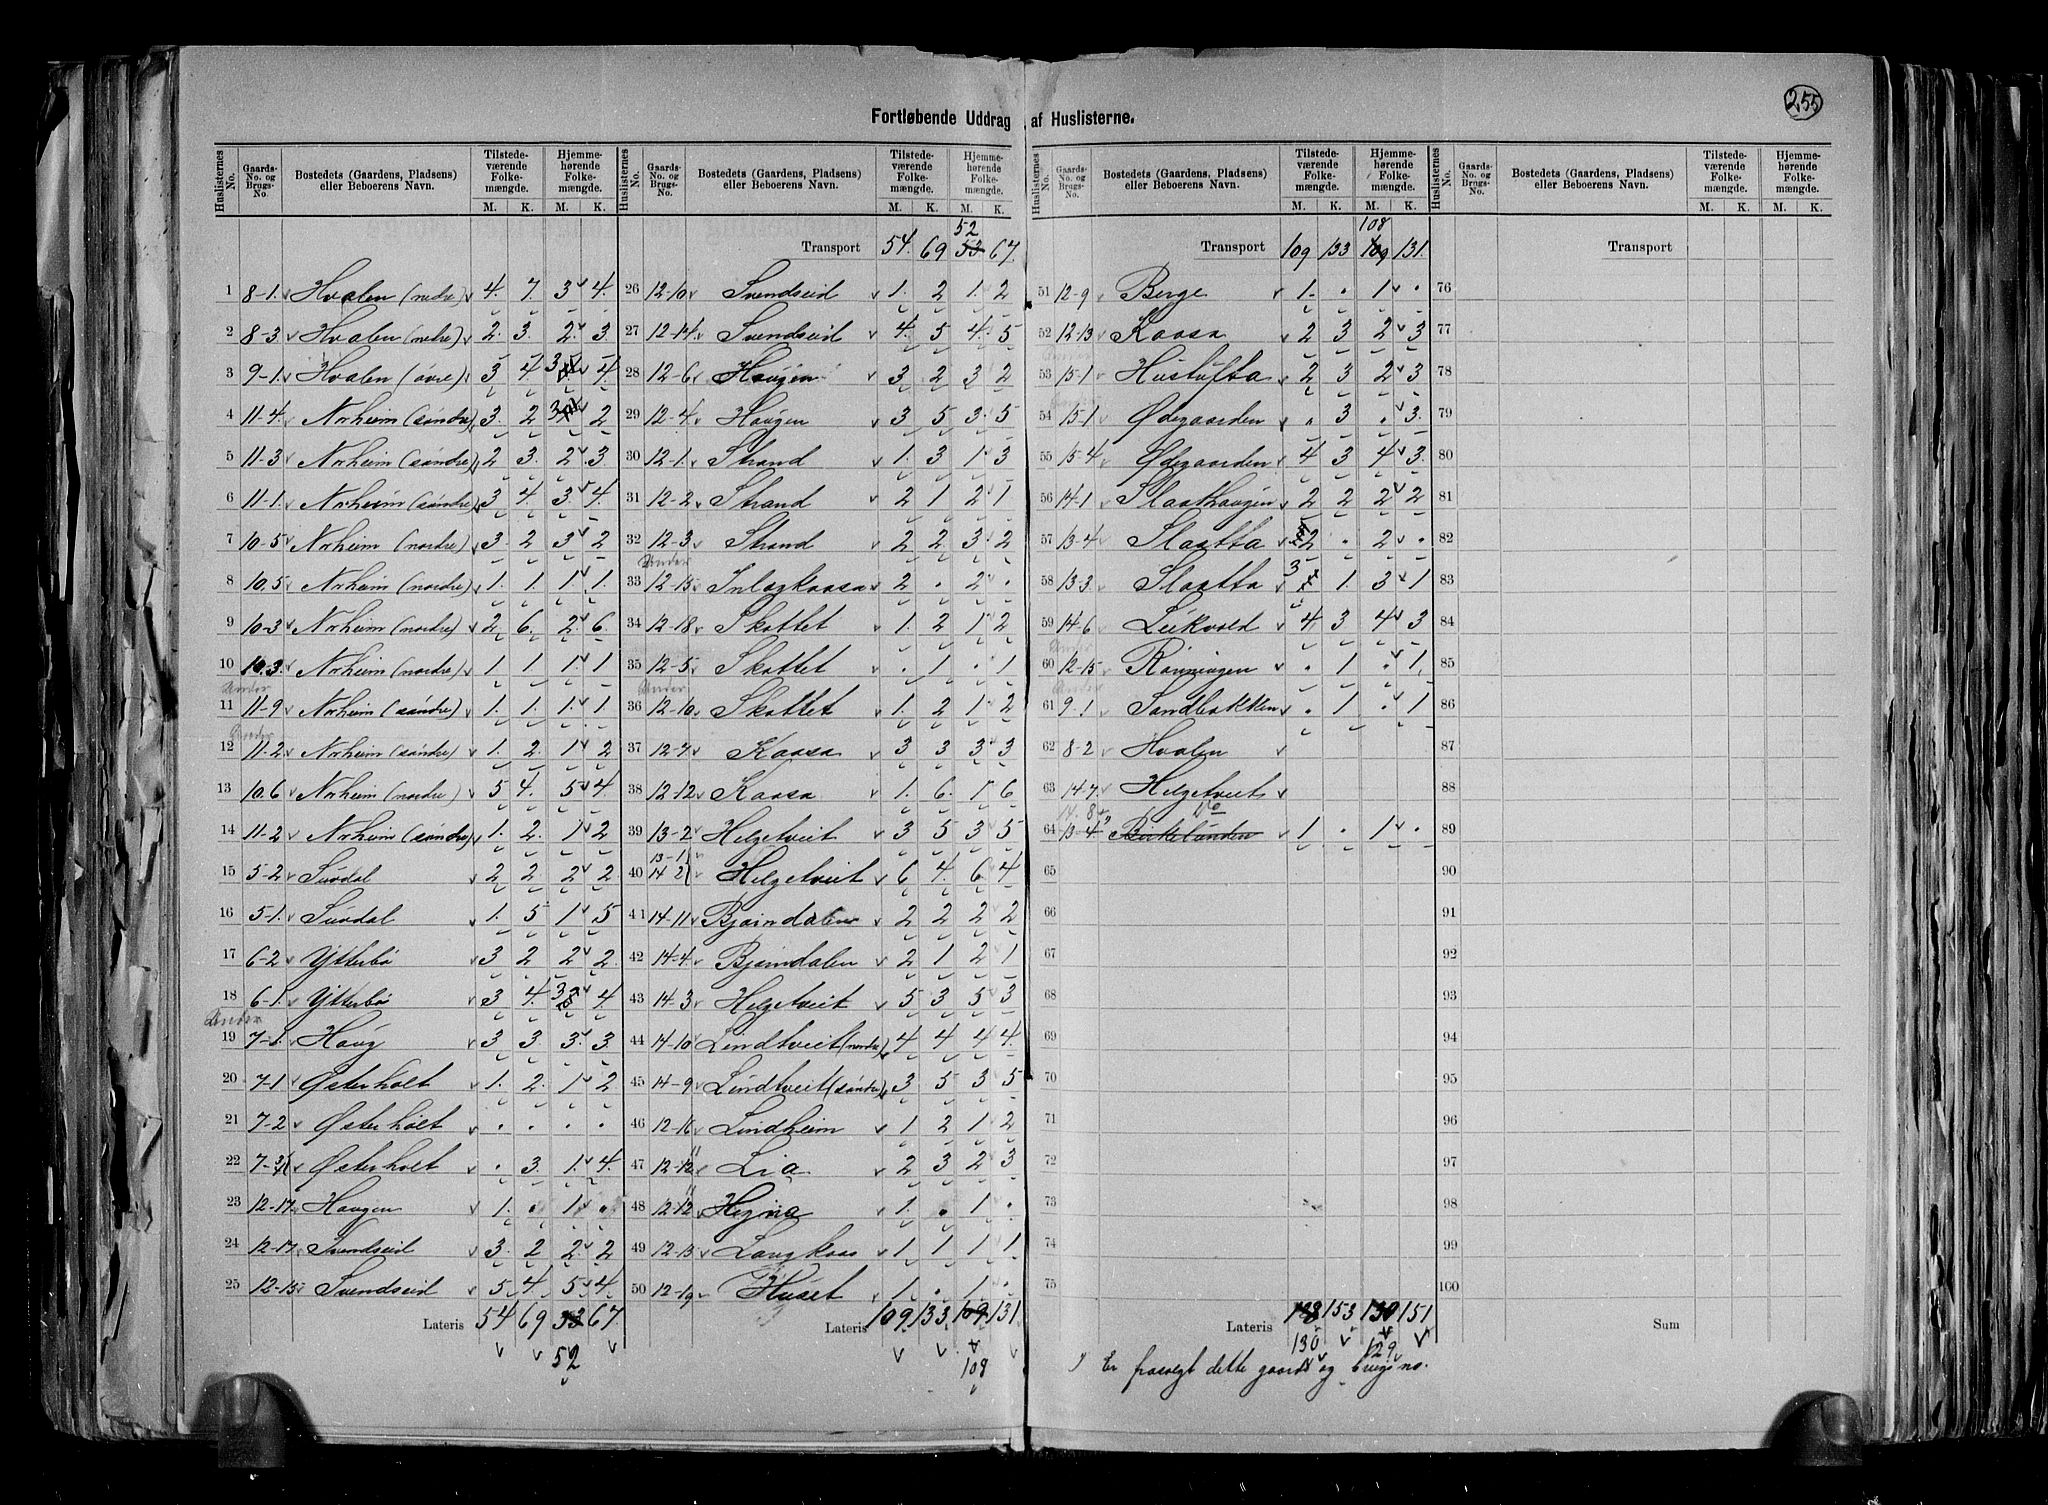 255
Fortløbende Uddrag af Huslisterne.
Huslisternes No. | Gaards-No. og Brugs-No. | Bostedets (Gaardens, Pladsens) eller Beboerens Navn. | Tilstedeværende Folkemængde. M. K. | Hjemmehørende Folkemængde. M. K.
1 8-1. Hvalen (nedre) 4. 7. 3 4.
2 8-3. Hvalen (nedre) 2. 3. 2. 3.
3 9-1. Hvalen (øvre) 3 4. 3 4.
4 11-4. Norheim (søndre) 3. 2 3 2
5 11-3 Norheim (søndre) 2 3. 2. 3.
6 11-1. Norheim (søndre) 3 4. 3. 4.
7 10-5 Norheim (nordre) 3. 2 3. 2
8 10.5 Norheim (nordre) 1. 1. 1 1.
9 10-3 Norheim (nordre) 2 6. 2. 6.
10 10.3. Norheim (nordre) 1 1. 1. 1
Under
11 11-9 Norheim (søndre) 1. 1. 1. 1.
Under
12 11-2 Norheim (søndre) 1. 2. 1 2
13 10.6 Norheim (nordre) 5 4. 5 4.
14 11-2 Norheim (søndre) 1. 2. 1 2
15 5-2 Suvdal 2 2 2 2.
16 5-1. Suvdal 1. 5 1 5
17 6-2 Ytterbø 3 2 2 2.
18 6-1. Ytterbø 3 4. 3 4.
Under
19 7-1. Haug 3 3 3. 3.
20 7-1 Østerholt 1. 2. 1 2
21 7-2 Østerholt . . . .
22 7-3/4 Østerholt . 3. 1. 4.
23 12-17 Haugen 1. . 1. .
24 12-17. Svendseid 3. 2 2. 2
25 12-15 Svendseid 5. 4. 5 4.
Lateris 54 69 53 67
52
Transport 54. 69 52 53 67.
26 12-10 Svendseid 1. 2 1. 2
27 12-14. Svendseid 4. 5 4. 5
28 12-6 Haugen 3 2 3 2
29 12-4. Haugen 3 5 3. 5
30 12-1. Strand 1. 3 1 3
31 12-2 Strand 2 1 2 1
32 12-3 Strand 2 2 3 2
Under
33 12-15 Inlagkaasa 2 . 2 .
34 12-18 Skottet 1. 2 1 2
35 12-5 Skottet . 1 . 1
Under
36 12-10 Skottet 1. 2 1 2
37 12-7 Kaasa 3 3 3 3
38 12-12 Kaasa 1. 6. 1 6
39 13-2 Helgetveit 3 5 3 5
40 13-1 14-2 Helgetveit 6 4. 6 4
41 14-11 Bjørndalen 2 2 2 2
42 14-4. Bjørndalen 2 1 2 1
43 14-3 Helgetveit 5 3 5 3
44 14-10 Lindtveit (nordre) 4 4 4 4.
45 14-9 Lindtveit (søndre) 3 5 3 5
46 12-16 Lindheim 1 2 1 2
47 12-12 Lia 2 3 2 3
48 12-12 Hegna 1. . 1 .
49 12-13 Langkaas 1 1 1 1
50 12-19 Huset 1. . 1 .
Lateris 109 133. 109 131
108
Transport 109 133 108 109 131.
51 12-9 Berge 1. . 1 .
52 12-13 Kaasa 2 3 2 3
Under
53 15-1 Hustufta 2 3 2 3
54 15-1 Ødegaarden . 3 . 3.
55 15-4 Ødegaarden 4 3 4 3.
56 14-1 Slaathaugen 2 2 2 2
57 13-4 Slaatta 2 . 2 .
58 13-3 Slaatta 3 1. 3 1
59 14-6 Leikvold 4 3 4 3
Under
60 12-15 Rønningen . 1 . 1.
Under
61 9-1 Sandbakken . 1 . 1
62 8-2 Hvalen
63 14-7. Helgetveit
14-8 Do
64 13-4 Birkelunden 1 . 1 .
65
66
67
68
69
70
71
72
73
74
75
Lateris 128 153 130 151
130 129
1) Er frasolgt dette gaards og brugs no.
Transport
76
77
78
79
80
81
82
83
84
85
86
87
88
89
90
91
92
93
94
95
96
97
98
99
100
Sum